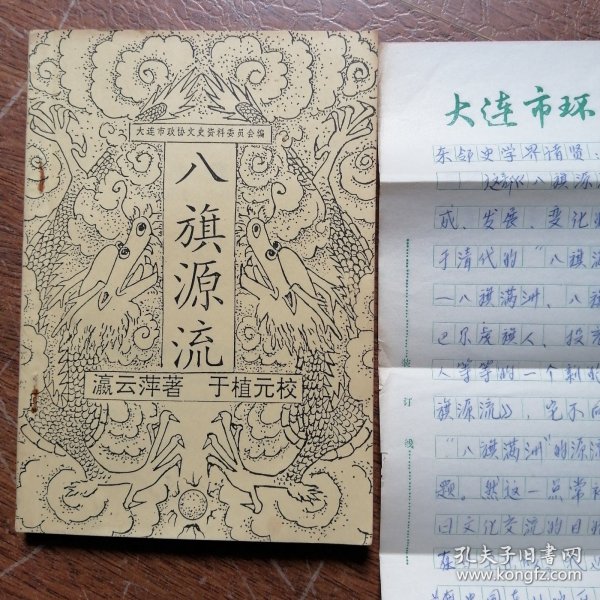 大连市政协文史资料委员会编
八旗源流
瀛云萍著 于植元校
大连市环
东邻史学界诸贤:
这部《八旗源
成、发展、变化
于清代的“八旗满
—八旗满洲、八旗
巴尔虎旗人、投充
人等等的一个新的
旗源流》,它不同
“八旗满洲”的源流
题。然这一点常
日文化交流的日
装订线
孔夫子旧书网
www.kongfz.com